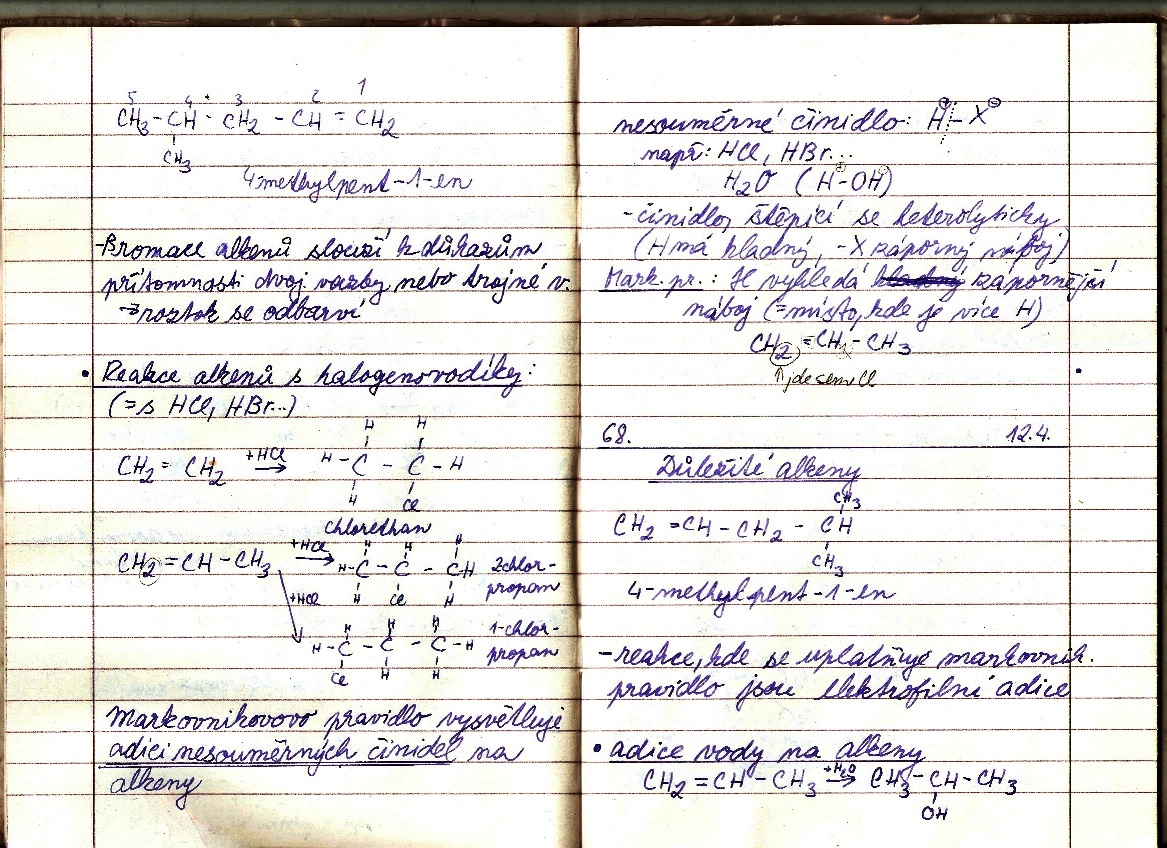 5 4 3 2 1
CH3-CH-CH2-CH=CH2
CH3
4-methylpent-1-en
-Bromace alkenů slouží k důkazům
přítomnosti dvoj vazby nebo trojné v.
→roztok se odbarví
• Reakce alkenů s halogenovodíky:
(=s HCl, HBr...)
H H
CH2=CH2 +HCl → H-C-C-H
H Cl
chlorethan
H H H
CH2=CH-CH3 +HCl → H-C-C-CH 2chlor-
H Cl H propan
+HCl
H H H
H-C-C-C-H 1-chlor-
Cl H H propan
Markovnikovovo pravidlo vysvětluje
adici nesouměrných činidel na
alkeny
nesouměrné činidlo: H⊕-X⊖
např: HCl, HBr...
H2O (H⊕-OH⊖)
-činidlo, štěpící se heterolyticky
(H má kladný, -X záporný náboj)
Mark. pr.: H vyhledá kladný zápornější
náboj (=místo, kde je více H)
CH2=CH-CH3
↑ jde sem
68. 12.4.
Důležité alkeny
CH3
CH2=CH-CH2-CH
CH3
4-methylpent-1-en
-reakce, kde se uplatňuje markovnik.
pravidlo jsou elektrofilní adice
• adice vody na alkeny
CH2=CH-CH3 +H2O → CH3-CH-CH3
OH